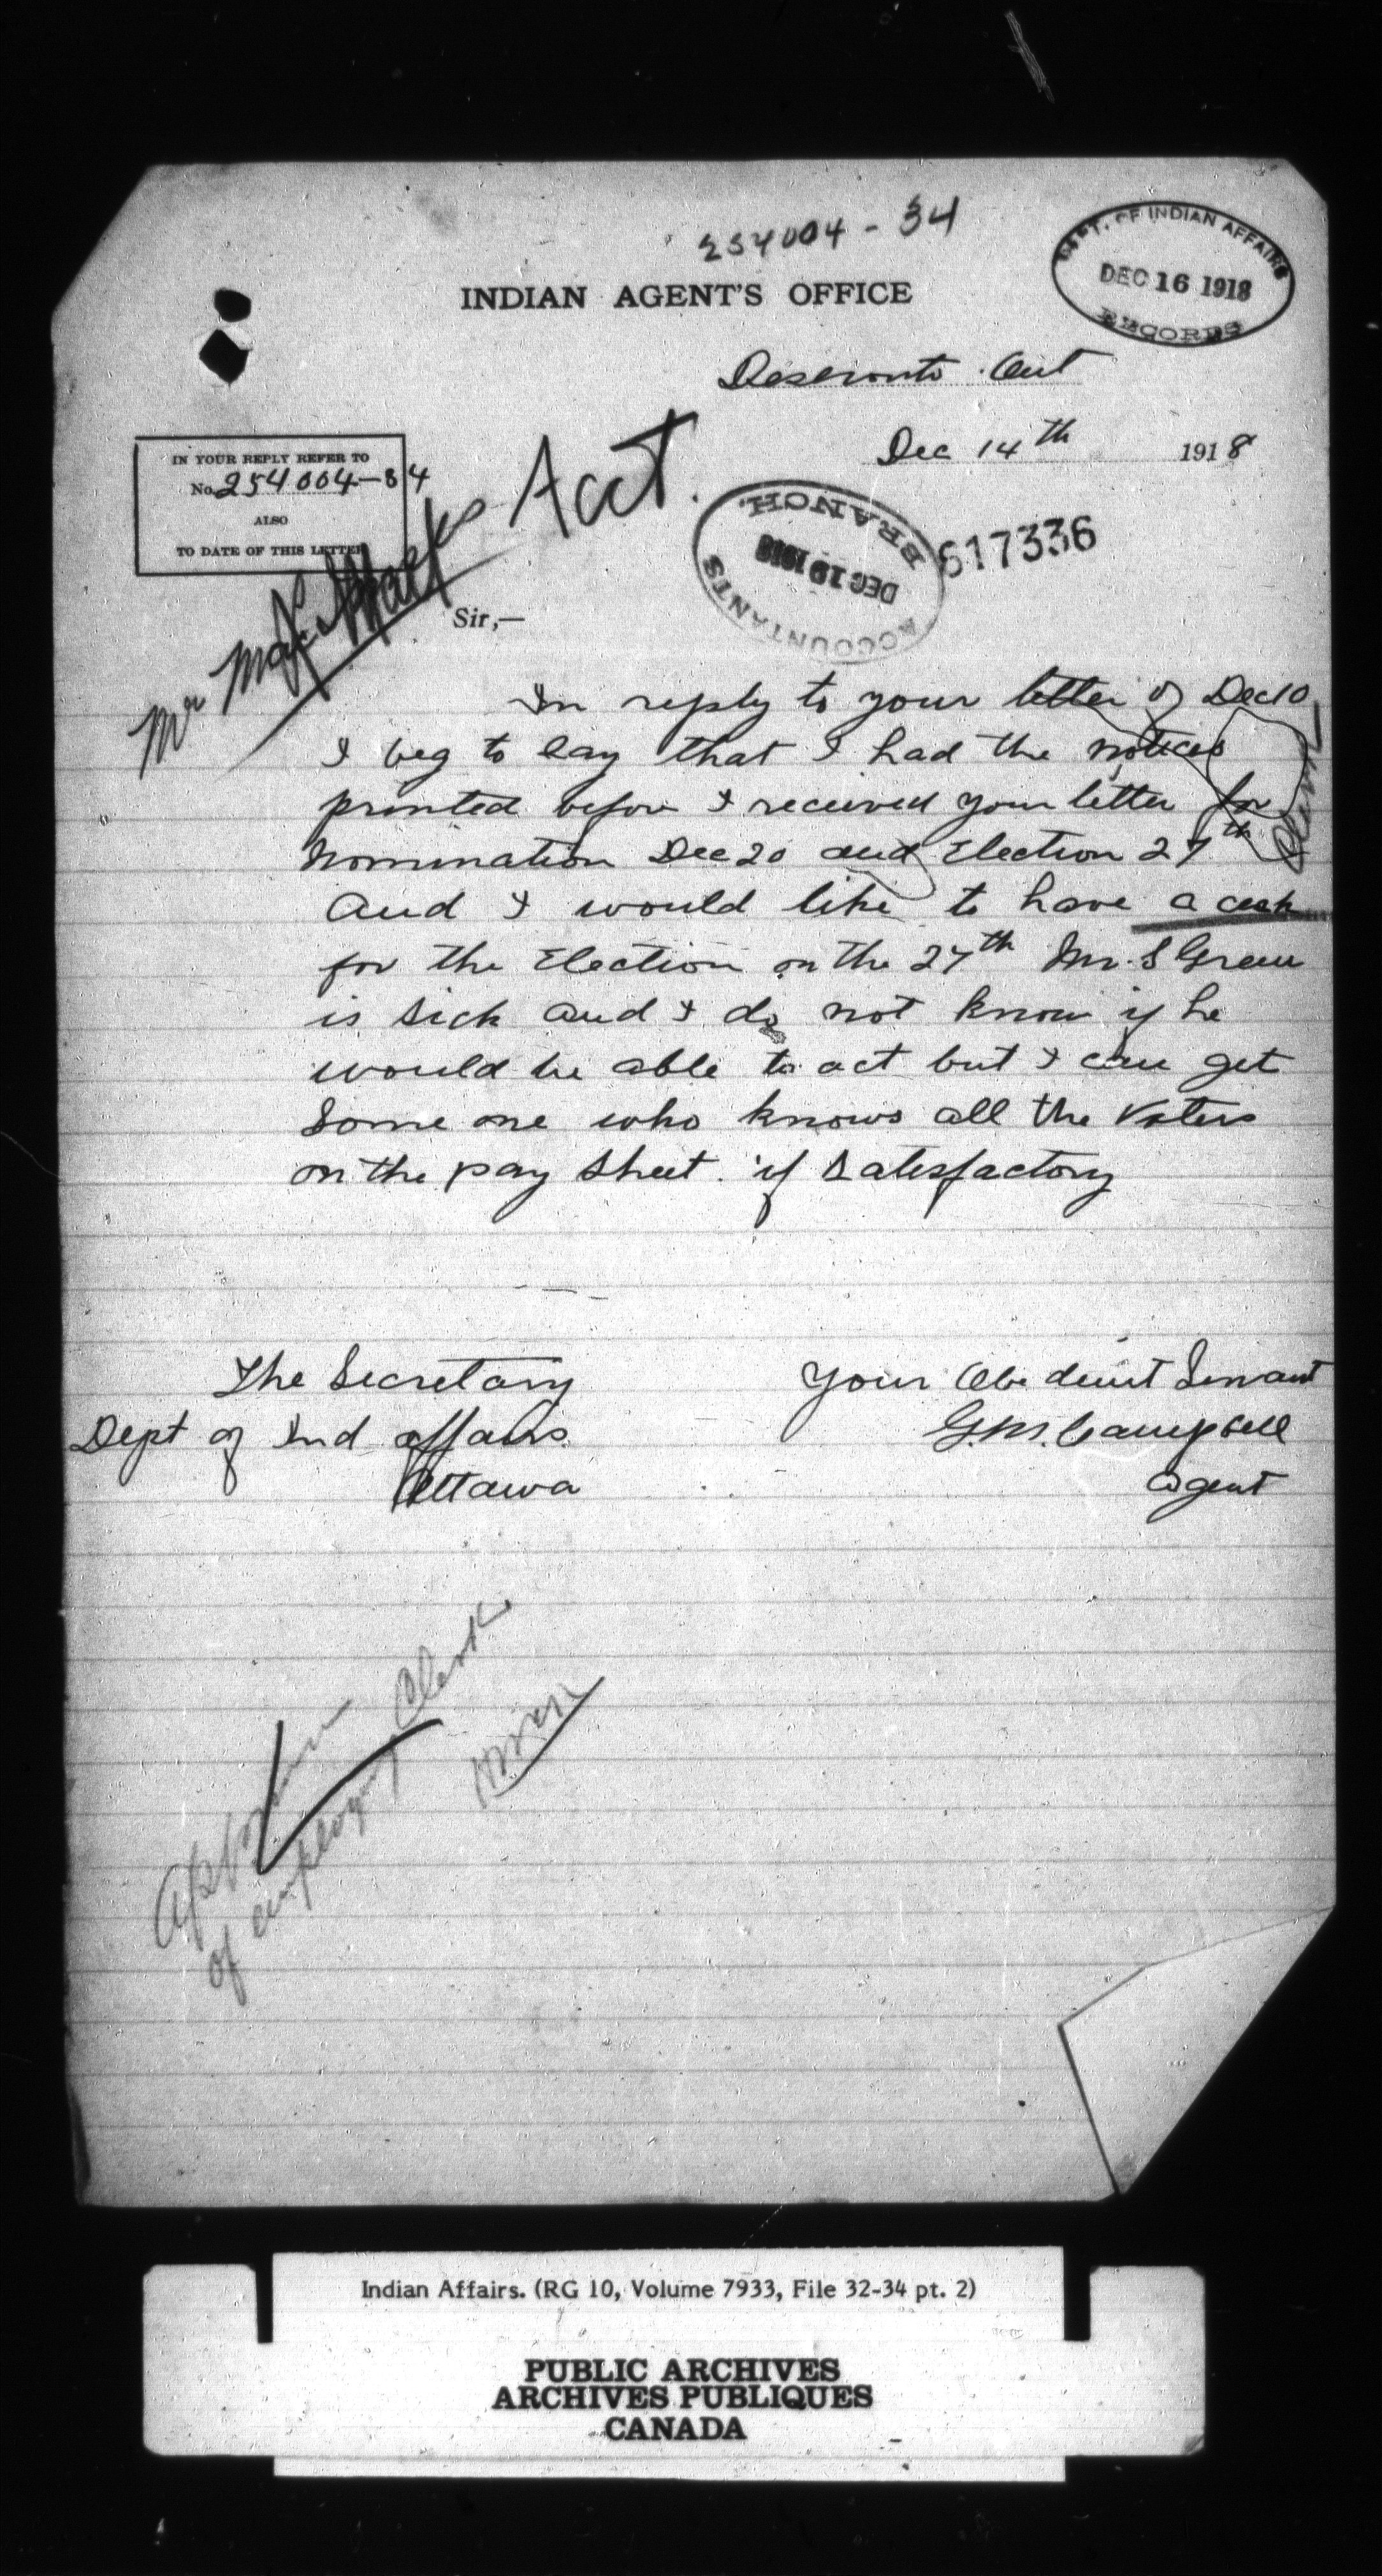 254004-34
INDIAN AGENT'S OFFICE
DEPT. OF INDIAN AFFAIRS
DEC 16 1918
RECORDS
Deseronto Ont
Dec 14th 1918
IN YOUR REPLY REFER TO
No. 254004-34
ALSO
TO DATE OF THIS LETTER
Acct.
Mr
ACCOUNTANTS
DEC 19 1918
BRANCH.
517336
Sir,—
In reply to your letter of Dec 10
I beg to say that I had the notices
printed before I received your letter for
Nomination Dec 20 and Election 27th
and I would like to have a
for the Election on the 27th Mr. S Green
is sick and I do not know if he
would be able to act but I can get
Some one who knows all the Voters
on the pay Sheet. if Satesfactory
The Secretary
Dept of Ind affairs.
Ottawa
Your Obedient Servant
G.M. Campbell
Agent
of employing Clerk
Indian Affairs. (RG 10, Volume 7933, File 32-34 pt. 2)
PUBLIC ARCHIVES
ARCHIVES PUBLIQUES
CANADA